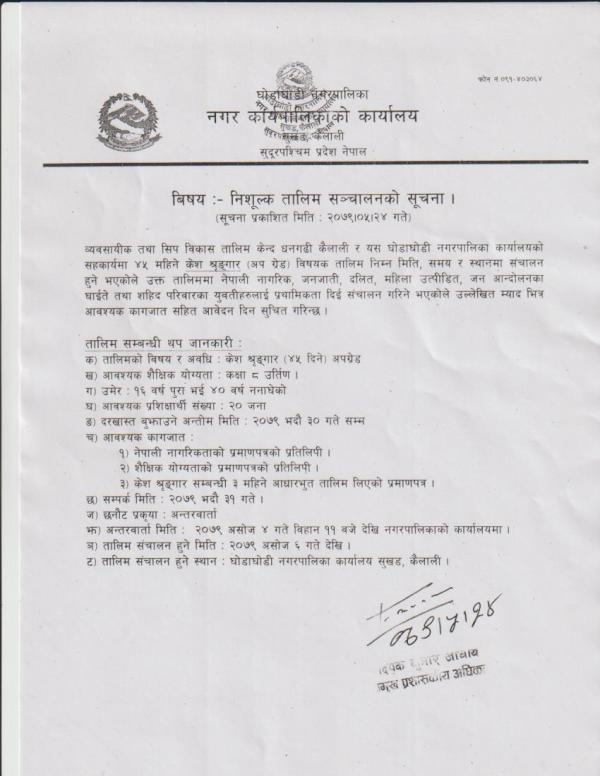 फोन नं ०९१-४०३०६४
घोडाघोडी नगरपालिका
नगर कार्यपालिकाको कार्यालय
सुखड, कैलाली
सुदूरपश्चिम प्रदेश नेपाल
बिषय :- निशूल्क तालिम सञ्चालनको सूचना ।
(सूचना प्रकाशित मिति : २०७९।०५।२४ गते)
व्यवसायीक तथा सिप विकास तालिम केन्द धनगढी कैलाली र यस घोडाघोडी नगरपालिका कार्यालयको
सहकार्यमा ४५ महिने केश श्रृङ्गार (अप ग्रेड) विषयक तालिम निम्न मिति, समय र स्थानमा संचालन
हुने भएकोले उक्त तालिममा नेपाली नागरिक, जनजाती, दलित, महिला उत्पीडित, जन आन्दोलनका
घाईते तथा शहिद परिवारका युवतीहरुलाई प्रथामिकता दिई संचालन गरिने भएकोले उल्लेखित म्याद भित्र
आवश्यक कागजात सहित आवेदन दिन सुचित गरिन्छ ।
तालिम सम्बन्धी थप जानकारी :
क) तालिमको विषय र अवधि : केश श्रृङ्गार (४५ दिने) अपग्रेड
ख) आवश्यक शैक्षिक योग्यता : कक्षा ८ उर्तिण ।
ग) उमेर : १६ वर्ष पुरा भई ४० वर्ष ननाघेको
घ) आवश्यक प्रशिक्षार्थी संख्या : २० जना
ङ) दरखास्त बुझाउने अन्तीम मिति : २०७९ भदौ ३० गते सम्म
च) आवश्यक कागजात :
१) नेपाली नागरिकताको प्रमाणपत्रको प्रतिलिपी ।
२) शैक्षिक योग्यताको प्रमाणपत्रको प्रतिलिपी ।
३) केश श्रृङ्गार सम्बन्धी ३ महिने आधारभुत तालिम लिएको प्रमाणपत्र ।
छ) सम्पर्क मिति : २०७९ भदौ ३१ गते ।
ज) छनौट प्रकृया : अन्तरवार्ता
झ) अन्तरवार्ता मिति : २०७९ असोज ४ गते विहान ११ बजे देखि नगरपालिकाको कार्यालयमा ।
ञ) तालिम संचालन हुने मिति : २०७९ असोज ६ गते देखि ।
ट) तालिम संचालन हुने स्थान : घोडाघोडी नगरपालिका कार्यालय सुखड, कैलाली ।
कुमार
प्रशासकीय